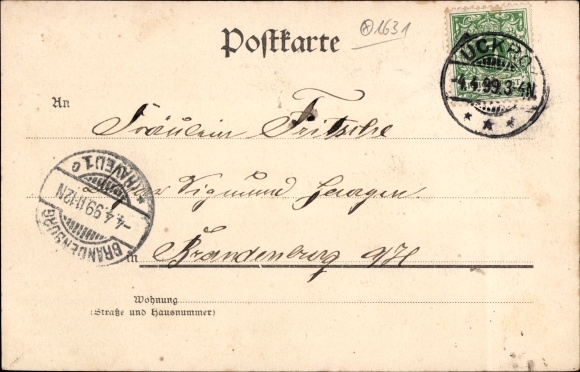 1631
Postkarte
ÜCKRO
-4.4.99.3-4N.
* * *
An
Fräulein Fritsche
Sigmund
BRANDENBURG
-4.4.99.11-12N.
*(HAVEL)1c
in Brandenburg a/H
Wohnung
(Straße und Hausnummer)